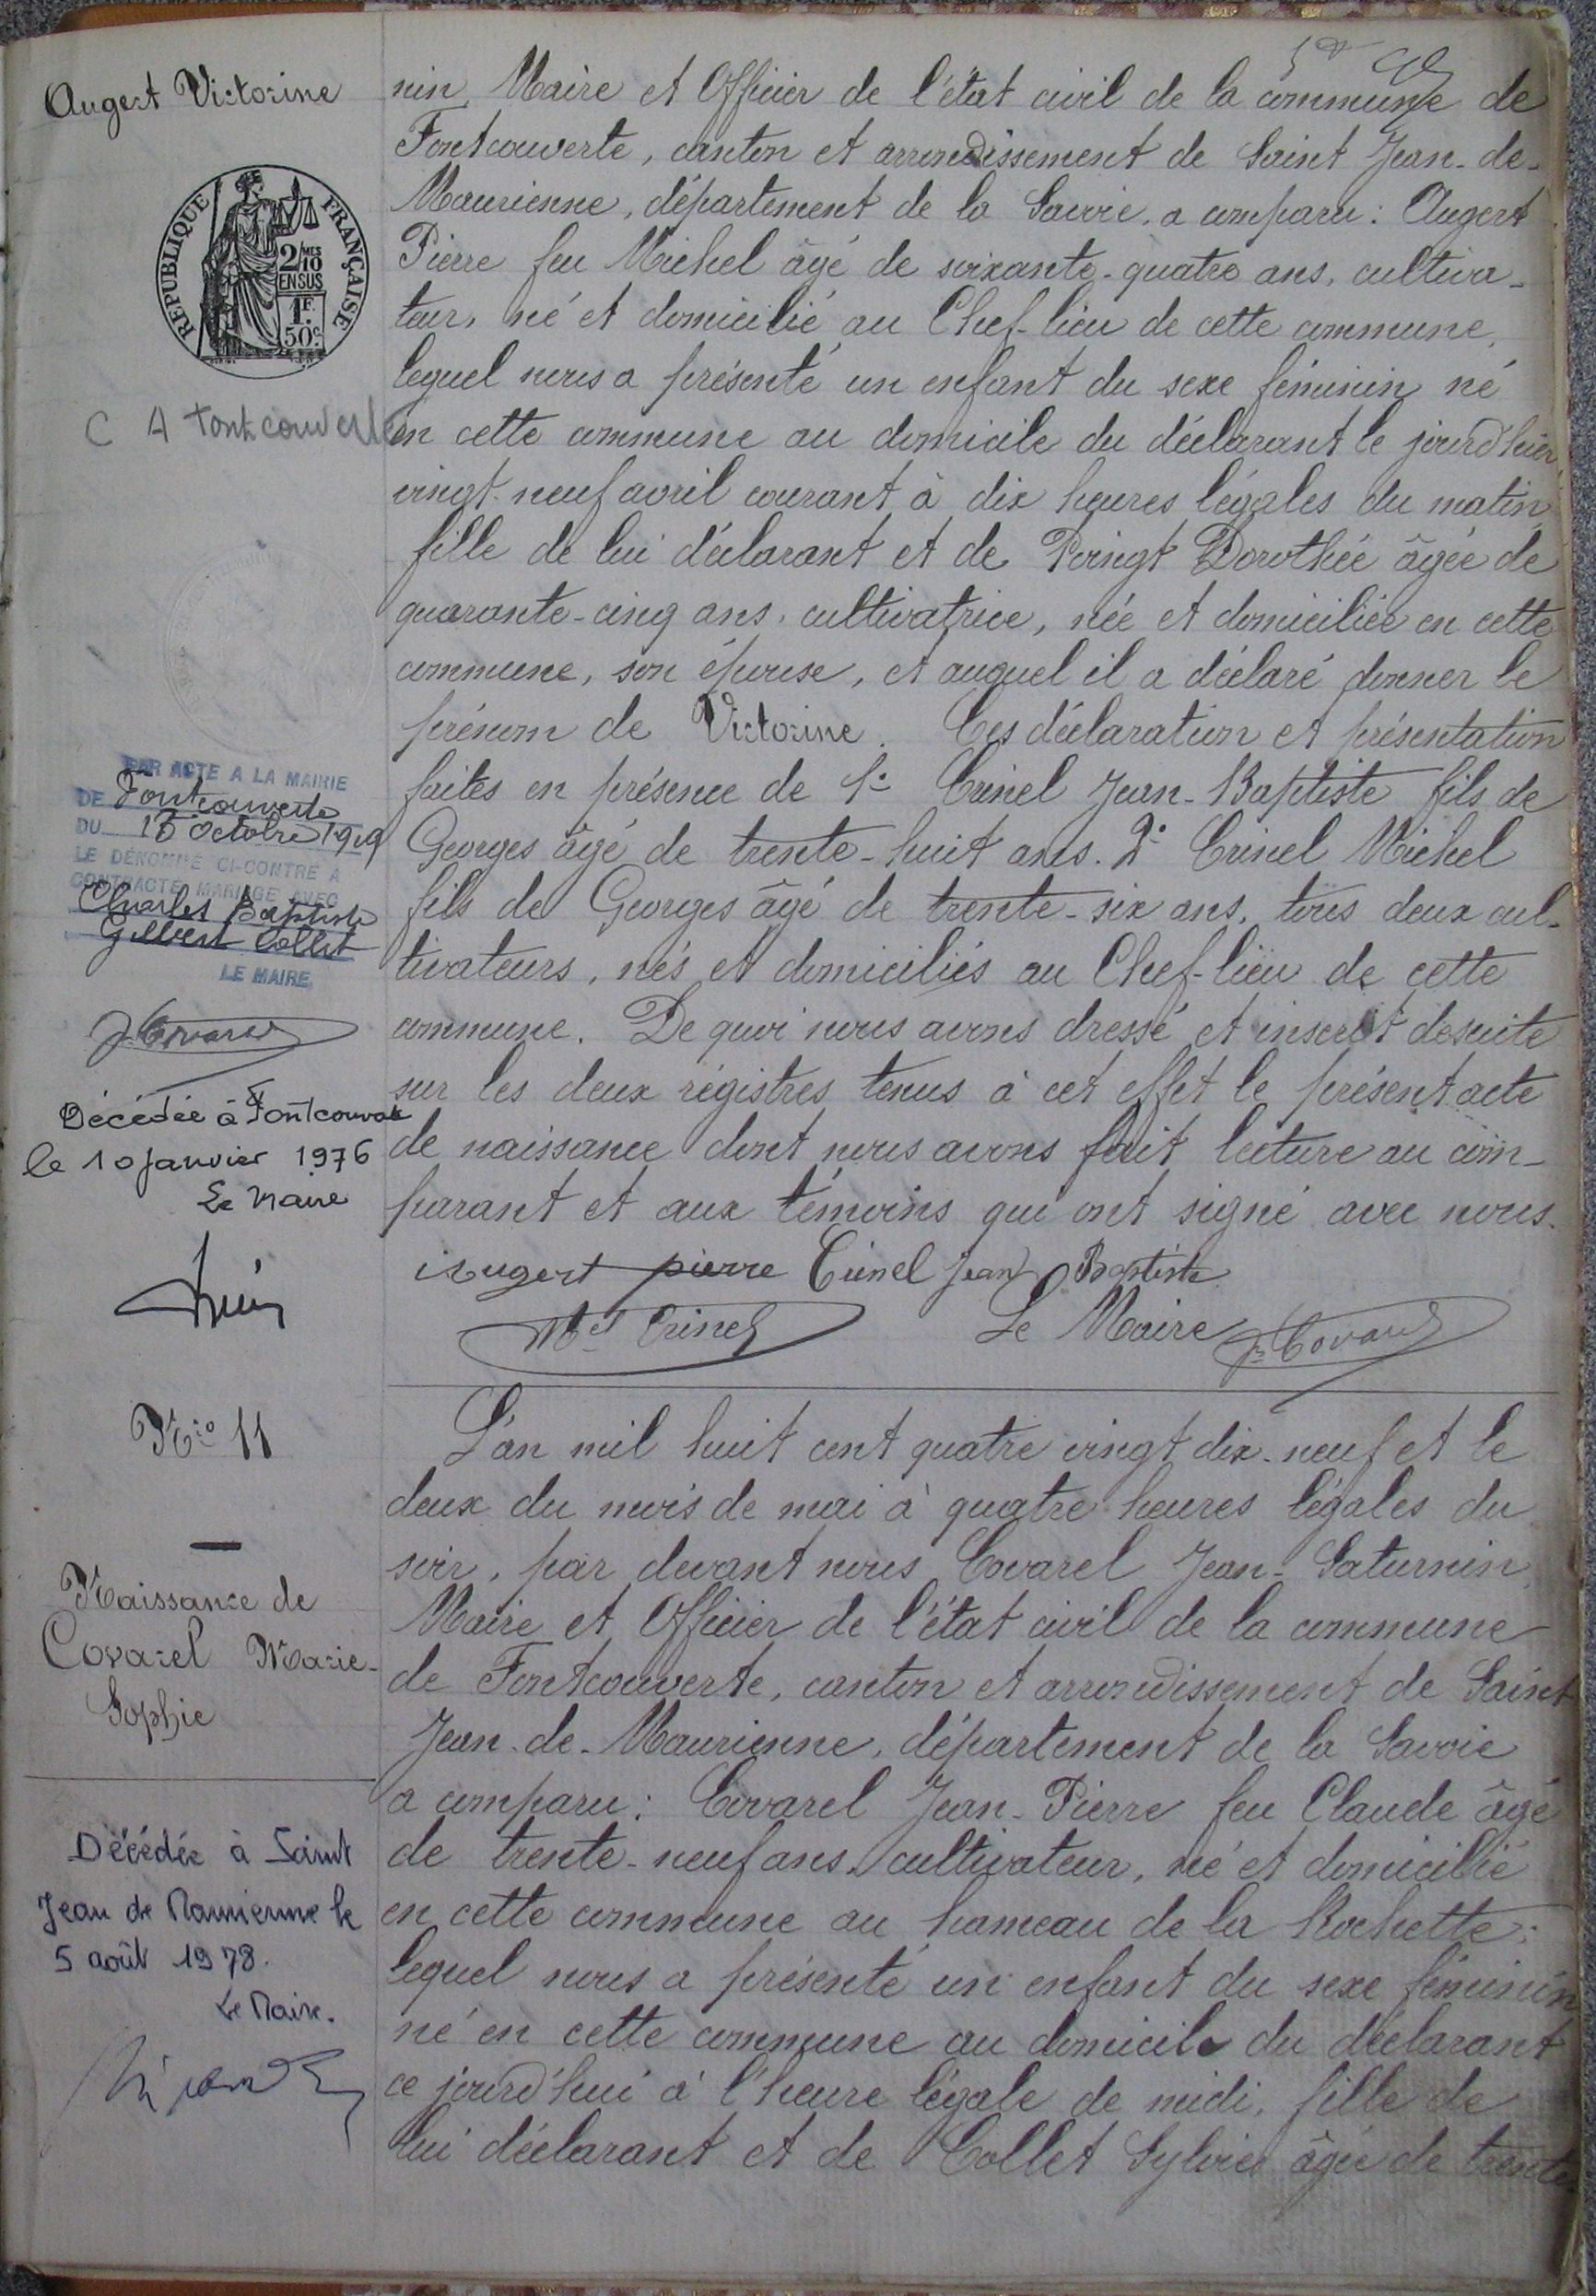 5
Augert Victorine
REPUBLIQUE FRANÇAISE
2/10MES
EN SUS
1F.
50c.
C A Fontcouverte
PAR ACTE A LA MAIRIE
DE Fontcouverte
DU 18 Octobre 1919
LE DÉNOMMÉ CI-CONTRE A
CONTRACTÉ MARIAGE AVEC
Charles Baptiste
Gilbert Collet
LE MAIRE
J. Covarel
Décédée à Fontcouverte
le 10 janvier 1976
Le Maire
nin, Maire et Officier de l'état civil de la commune de
Fontcouverte, canton et arrondissement de Saint Jean-de-
Maurienne, département de la Savoie, a comparu : Augert
Pierre feu Michel âgé de soixante-quatre ans, cultiva-
teur, né et domicilié au Chef-lieu de cette commune,
lequel nous a présenté un enfant du sexe féminin né
en cette commune au domicile du déclarant le jourd'hier
vingt-neuf avril courant à dix heures légales du matin
fille de lui déclarant et de Poingt Dorothée âgée de
quarante-cinq ans, cultivatrice, née et domiciliée en cette
commune, son épouse, et auquel il a déclaré donner le
prénom de Victorine. Ces déclaration et présentation
faites en présence de 1° Crinel Jean-Baptiste fils de
Georges âgé de trente-huit ans. 2° Crinel Michel
fils de Georges âgé de trente-six ans, tous deux cul-
tivateurs, nés et domiciliés au Chef-lieu de cette
commune. De quoi nous avons dressé et inscrit desuite
sur les deux régistres tenus à cet effet le présent acte
de naissance dont nous avons fait lecture au com-
parant et aux témoins qui ont signé avec nous.
Augert pierre Crinel Jean Baptiste
Mel Crinel Le Maire J. Covarel
Nro 11
Naissance de
Covarel Marie-
Sophie
Décédée à Saint
Jean de Maurienne le
5 août 1978.
Le Maire.
L'an mil huit cent quatre vingt dix-neuf et le
deux du mois de mai à quatre heures légales du
soir, par devant nous Covarel Jean-Saturnin,
Maire et Officier de l'état civil de la commune
de Fontcouverte, canton et arrondissement de Saint
Jean-de-Maurienne, département de la Savoie
a comparu : Covarel Jean-Pierre feu Claude âgé
de trente-neuf ans, cultivateur, né et domicilié
en cette commune au hameau de la Rochette :
lequel nous a présenté un enfant du sexe féminin
né en cette commune au domicile du déclarant
ce jourd'hui à l'heure légale de midi, fille de
lui déclarant et de Collet Sylvie âgée de trente